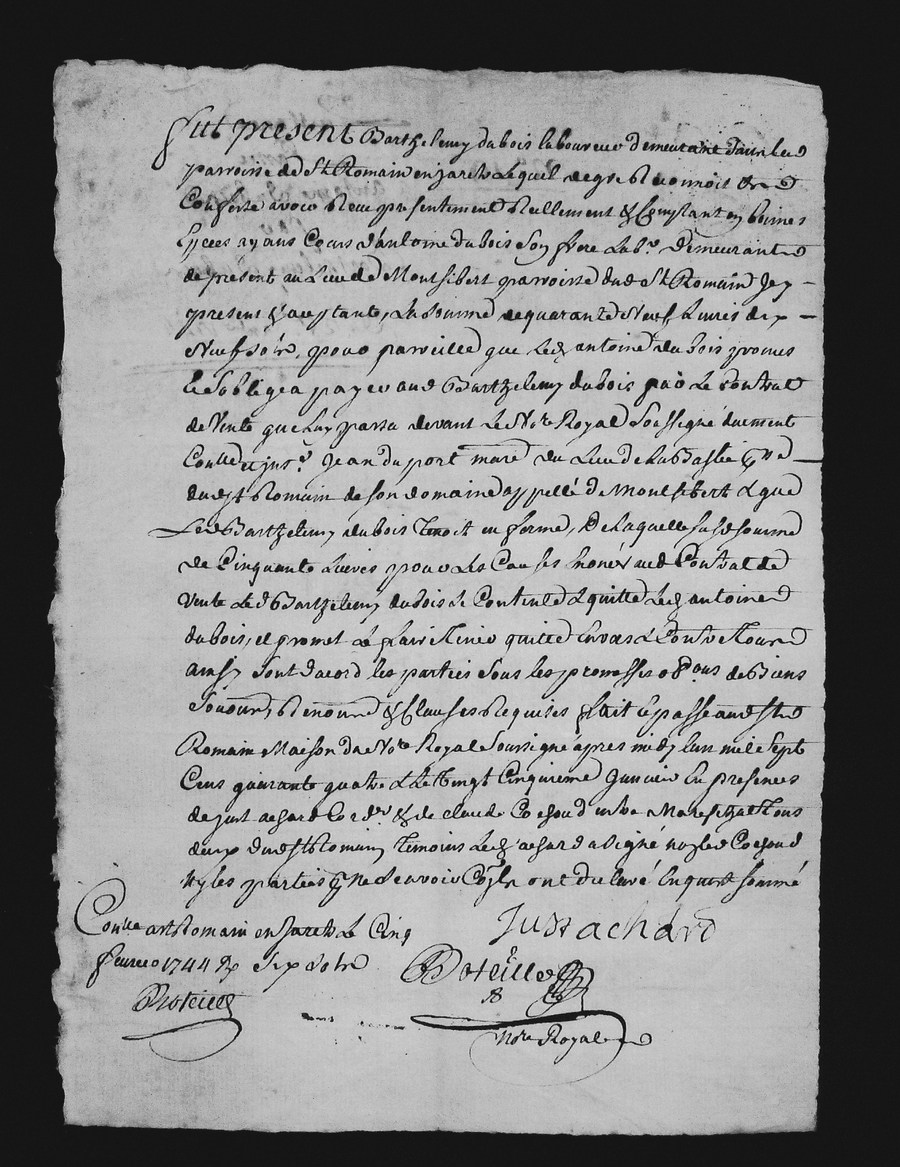 fut present Barthelemy dubois laboureur demeurant
parroisse de St Romain en Jarets Lequel de gre Reconnoit &
Confesse avoir Reeu presentement Reellement & Comptant en bonnes
Espces ayans Cours d'antoine dubois Son frere Labr. Demeurant
de présent au Lieu de Montsibert parroisse dud St Romain Jcy
present & aceptant, La somme de quarante Neuf Livres dix
Neuf sols, pour pareille que Led antoine dubois promes
& s'obligea payer aud Barthelemy dubois par Le Contrat
de Vente que Luy passa devant Le Nore Royal Soussigné duement
Conllé et jns. Jean duport mard du Lieu de La Bastie
dud St Romain de son domaine appellé de Montsibert & que
Led Barthelemy dubois tenoit en ferme, De Laquelle susd somme
de Cinquante Livres pour Les Causes Enoncés aud Contrat de
Vente Led Barthelemy dubois Se Contente & quitte Led antoine
dubois, et promet Le faire tenir quitte Envers & Contre tous
ainsy Sont d'acord les parties sous les promesses de Biens
Renonns & Clauses Requises fait & passé aud St
Romain Maison du Nore Royal Soussigné apres midy Lan mil Sept
Cens quarante quatre & Le Vingt Cinquieme Janvier En presences
de just achard & de claude Mareschal tous
deux dud St Romain temoins Led achard a signé non led
Ny les parties pr Ne Scavoir ont declaré Enquis & sommé
Just achard
Conlle a St Romain en Jarets Le Cinq
feurier 1744 Rx Six sols
Boteille
Boteille
Nore Royal